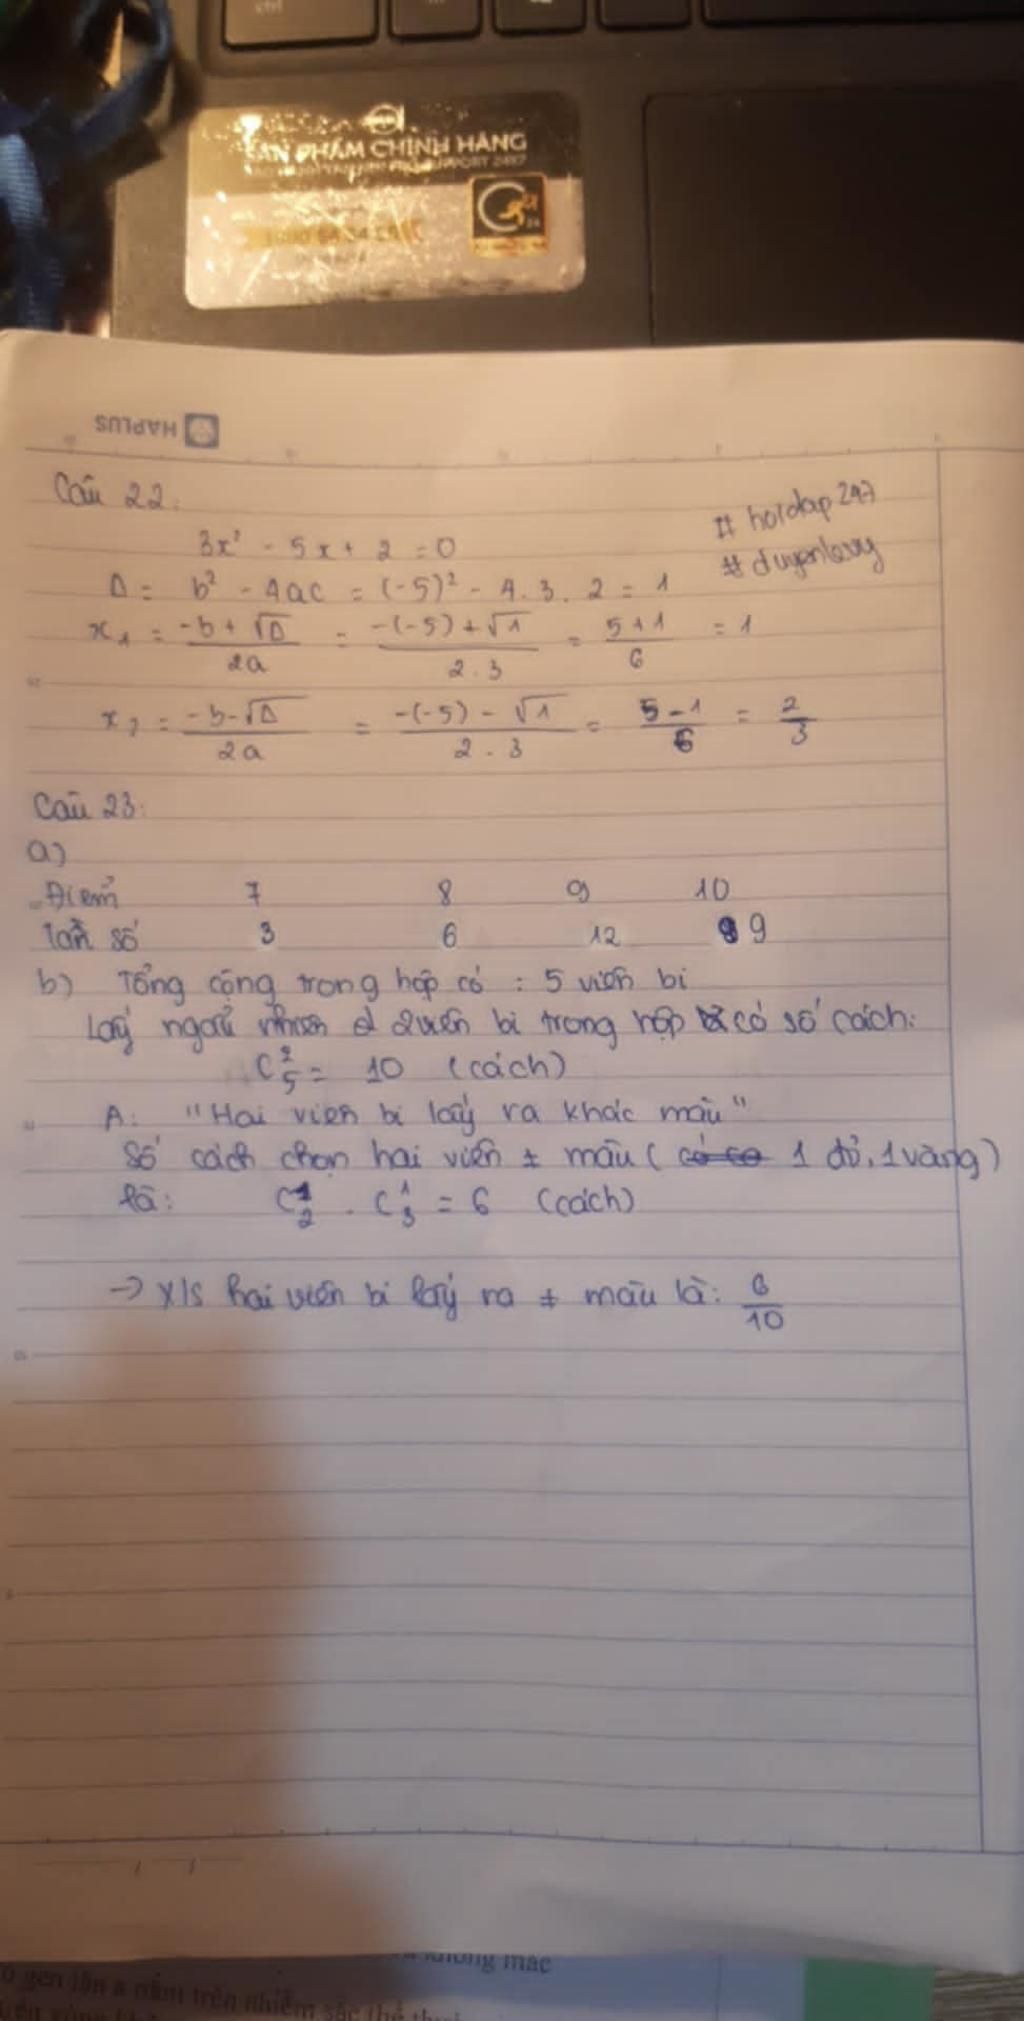 ctrl
SẢN PHẨM CHÍNH HÃNG
HAPLUS
Câu 22:
#hoidap247
#duyenlavy
3x² - 5x + 2 = 0
Δ = b² - 4ac = (-5)² - 4.3.2 = 1
x₁ = (-b + √Δ)/2a = (-(-5) + √1)/2.3 = (5+1)/6 = 1
x₂ = (-b - √Δ)/2a = (-(-5) - √1)/2.3 = (5-1)/6 = 2/3
Câu 23:
a)
Điểm 7 8 9 10
Tần số 3 6 12 9
b) Tổng cộng trong hộp có : 5 viên bi
Lấy ngẫu nhiên 2 viên bi trong hộp có số cách:
C²₅ = 10 (cách)
A: "Hai viên bi lấy ra khác màu"
Số cách chọn hai viên ≠ màu ( 1 đỏ, 1 vàng)
là: C¹₂ . C¹₃ = 6 (cách)
→ X/S hai viên bi lấy ra ≠ màu là: 6/10
không mắc
gen lặn a nằm trên nhiễm sắc thể